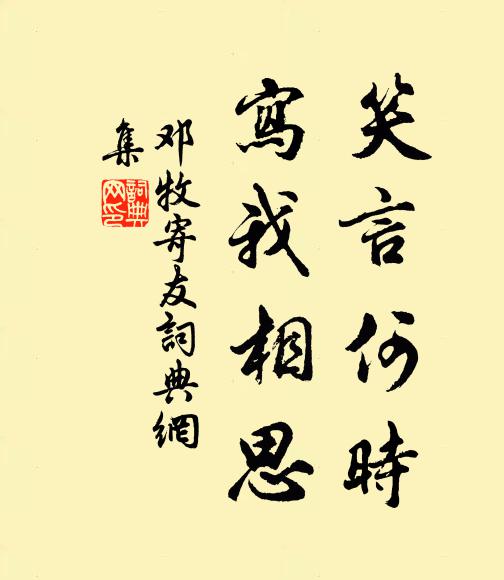 笑言何時
寫我相思
邓牧寄友詞典網
集
詞典
网印